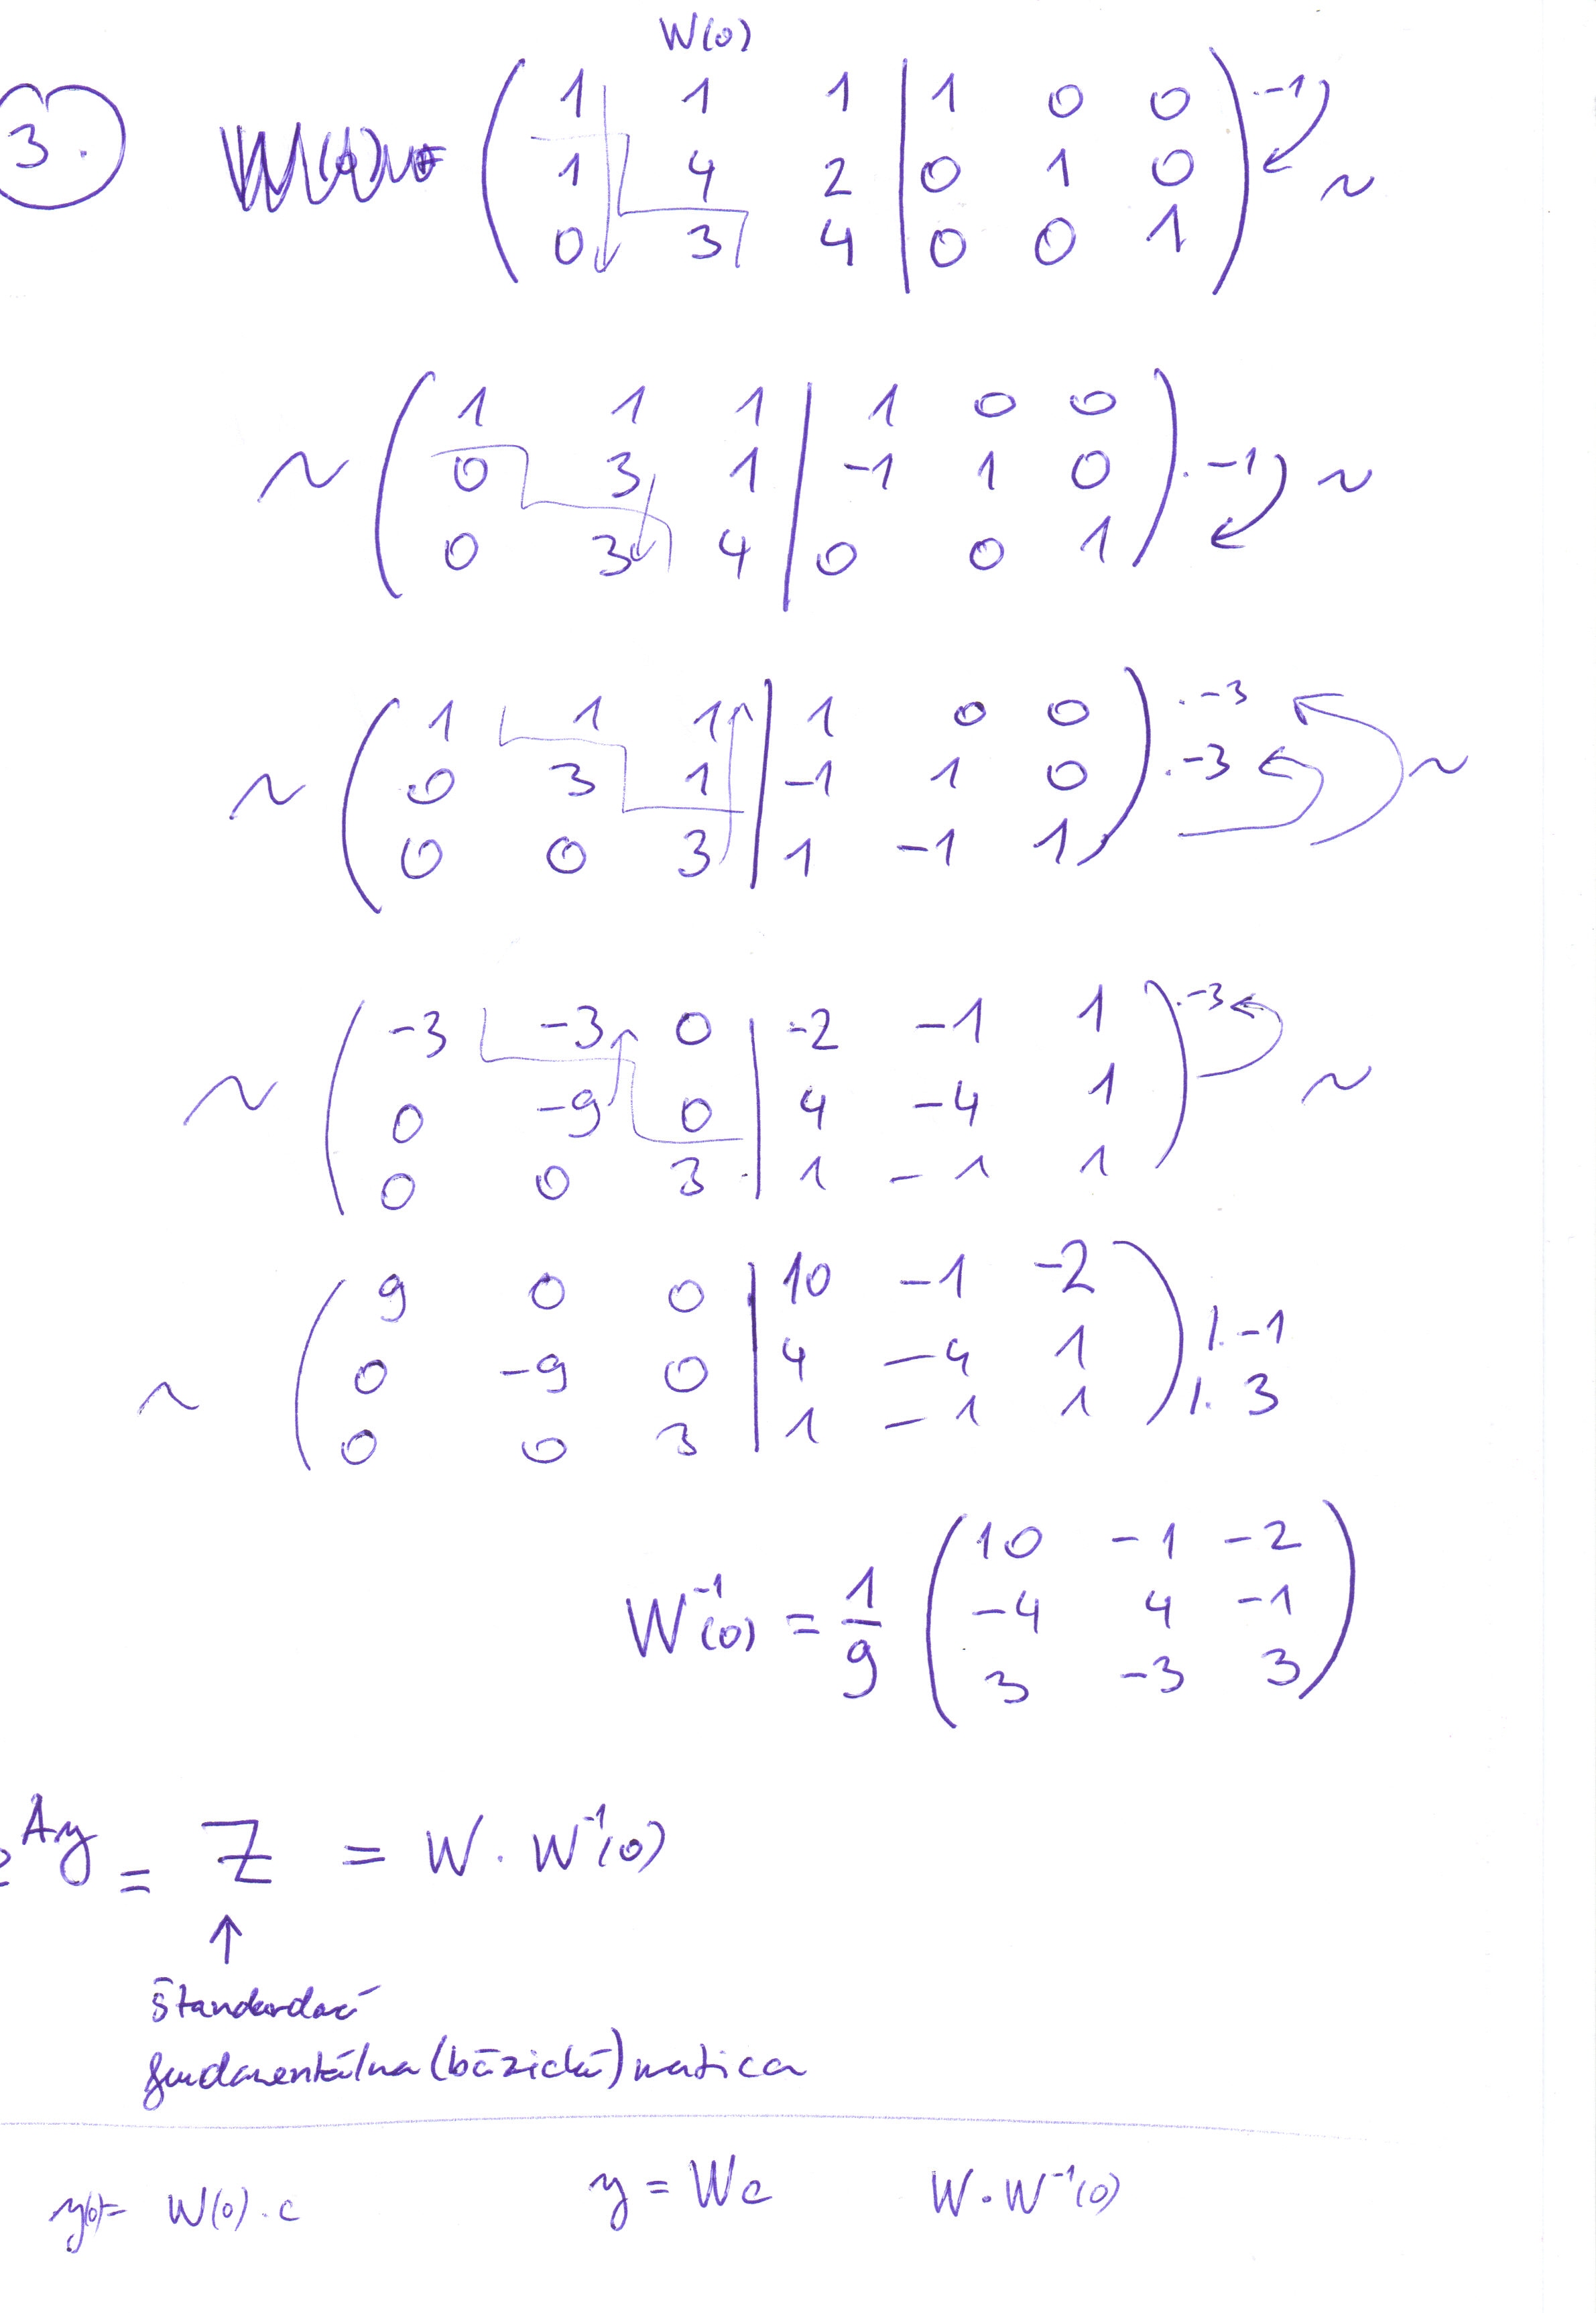 W(0)
3.
( 1 1 1 | 1 0 0 ) .-1
( 1 4 2 | 0 1 0 ) ~
( 0 3 4 | 0 0 1 )
( 1 1 1 | 1 0 0 )
~ ( 0 3 1 | -1 1 0 ) .-1 ~
( 0 3 4 | 0 0 1 )
( 1 1 1 | 1 0 0 ) .-3
~ ( 0 3 1 | -1 1 0 ) .-3 ~
( 0 0 3 | 1 -1 1 )
( -3 -3 0 | -2 -1 1 ) .-3
~ ( 0 -9 0 | 4 -4 1 ) ~
( 0 0 3 | 1 -1 1 )
( 9 0 0 | 10 -1 -2 )
~ ( 0 -9 0 | 4 -4 1 ) /.-1
( 0 0 3 | 1 -1 1 ) /. 3
( 10 -1 -2 )
W⁻¹(0) = 1/9 ( -4 4 -1 )
( 3 -3 3 )
Ay = Z = W . W⁻¹(0)
↑
štandardná
fundamentálna (bázická) matica
y(0)= W(0).c y = Wc W.W⁻¹(0)